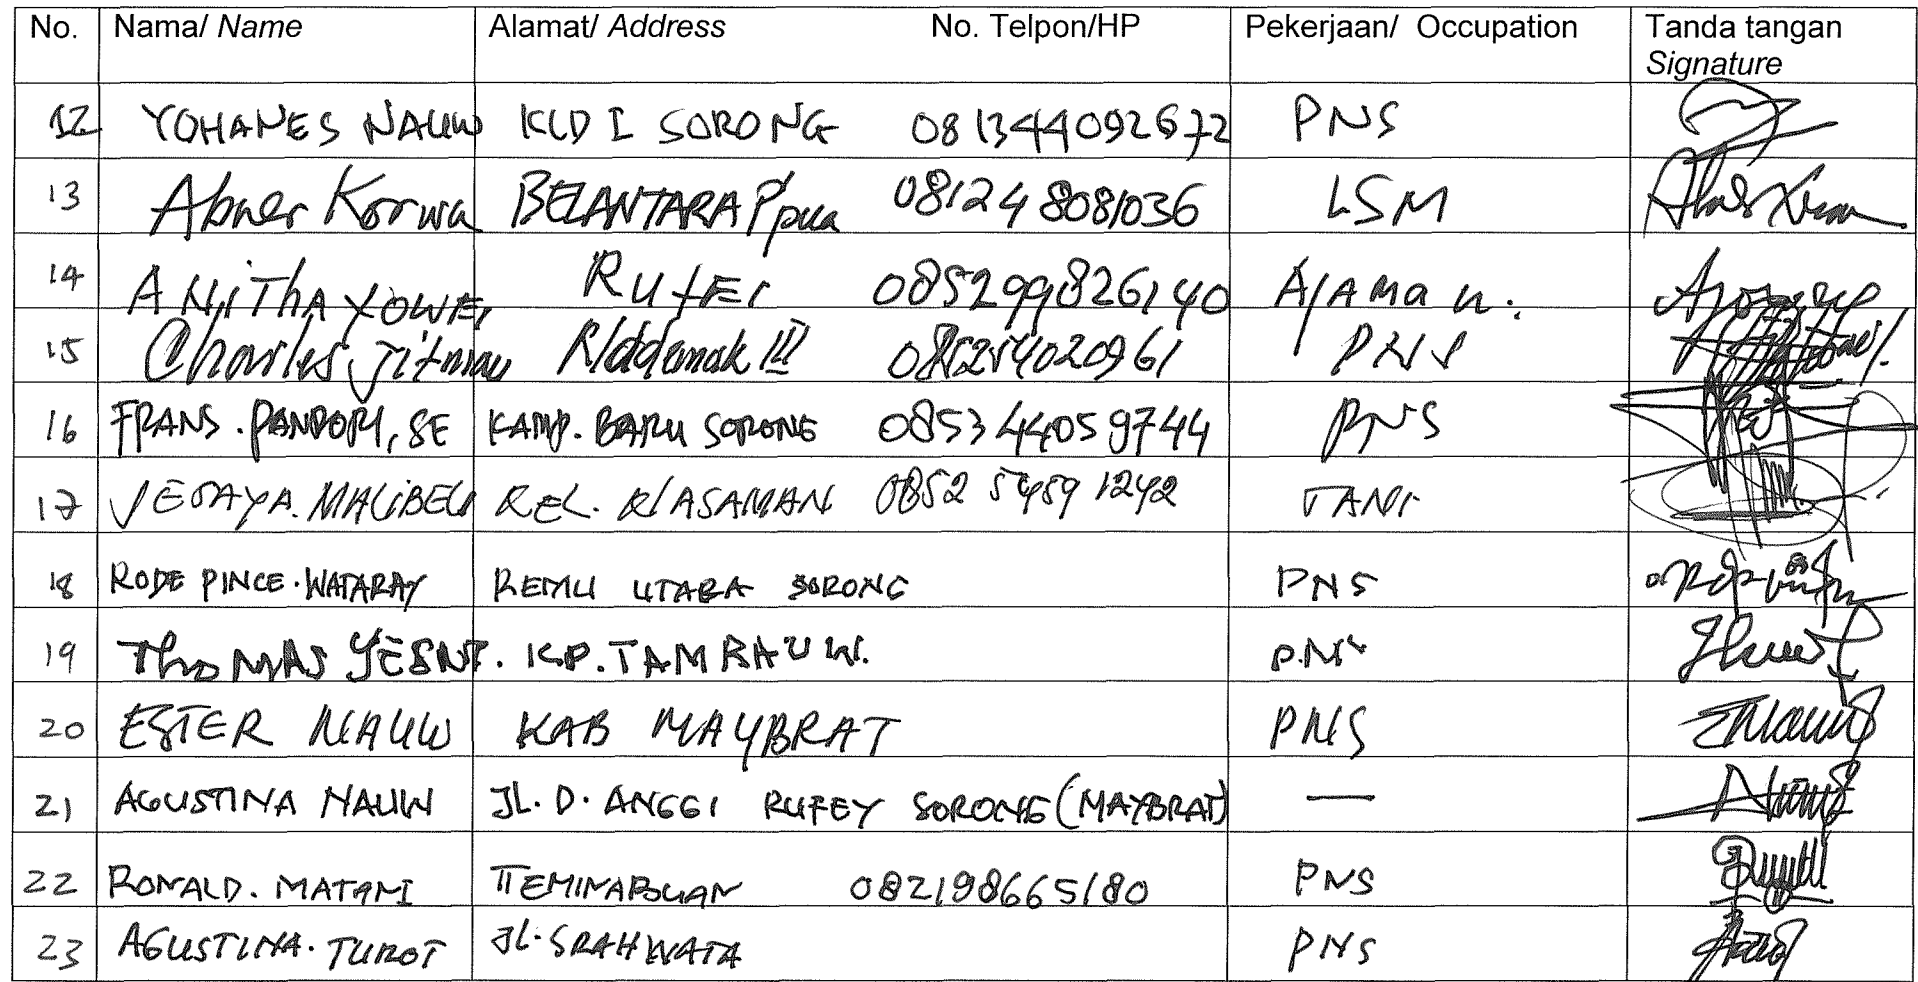 No. Nama/ Name Alamat/ Address No. Telpon/HP Pekerjaan/ Occupation Tanda tangan
Signature
12 YOHANES NAUW KLD I SORONG 081344092672 PNS
13 Abner Korwa BELANTARA Ppua 081248081036 LSM
14 ANiThA YOWEI RUfEI 085299826140
15 Charles Jitmau 085254020961 PNS
16 FRANS. PANDORI, SE KAMP. BARU SORONG 085344059744 PNS
17 YESAYA. MALIBELA KEL. KLASAMAN 0852 5459 1242 TANI
18 RODE PINCE. WATARAY REMU UTARA SORONG PNS
19 ThOMAS YESNT. K.P. TAMBRAUW. P.NS
20 ESTER NAUW KAB MAYBRAT PNS
21 AGUSTINA NAUW JL. D. ANGGI RUFEY SORONG (MAYBRAT) —
22 RONALD. MATANI TEMINABUAN 082198665180 PNS
23 AGUSTINA. TUROT JL. SRAHWATA PNS